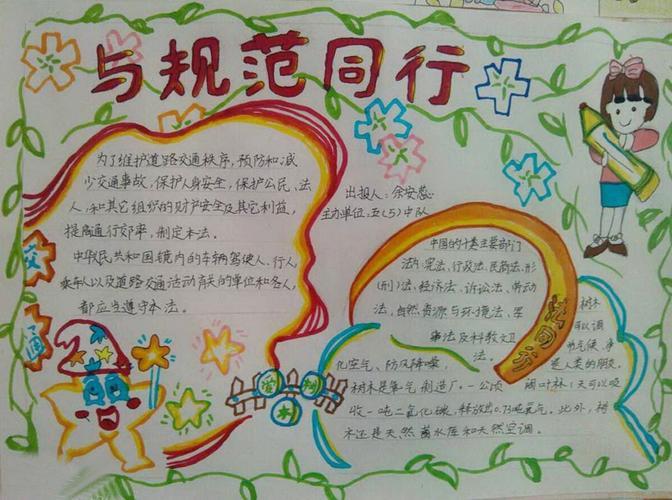 与规范同行
为了维护道路交通秩序，预防和减
少交通事故，保护人身安全，保护公民、法
人，和其它组织的财产安全及其它利益，
提高通行效率，制定本法。
中华民共和国镜内的车辆驾使人、行人，
乘车人以及道路交通活动有关的单位和各人，
都应当遵守本法。
交
通
出报人：余安蕊
主办单位：五(5)中队
中国的十基主要部门
法：宪法、行政法、民商法、形
(刑)法、经济法、诉讼法、劳动
法，自然资源与环境法、军
事法及科教文卫
法。
法同行
爱树木
树木
可以调
节气侯、净
化空气、防风降噪，是人类的朋友。
树木是氧气制造厂，一公顷阔叶林1天可以吸
收一吨二氧化碳，释放出0.73吨氧气。此外，树
木还是天然蓄水库和天然空调。